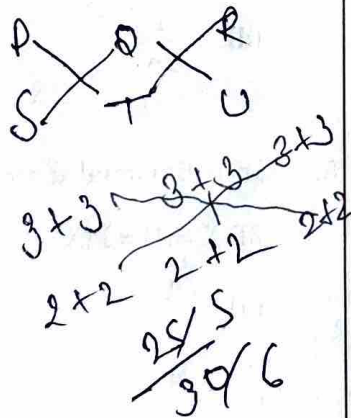 P Q R
S T U
3+3 3+3 3+3
2+2 2+2 2+2
25/5
30/6